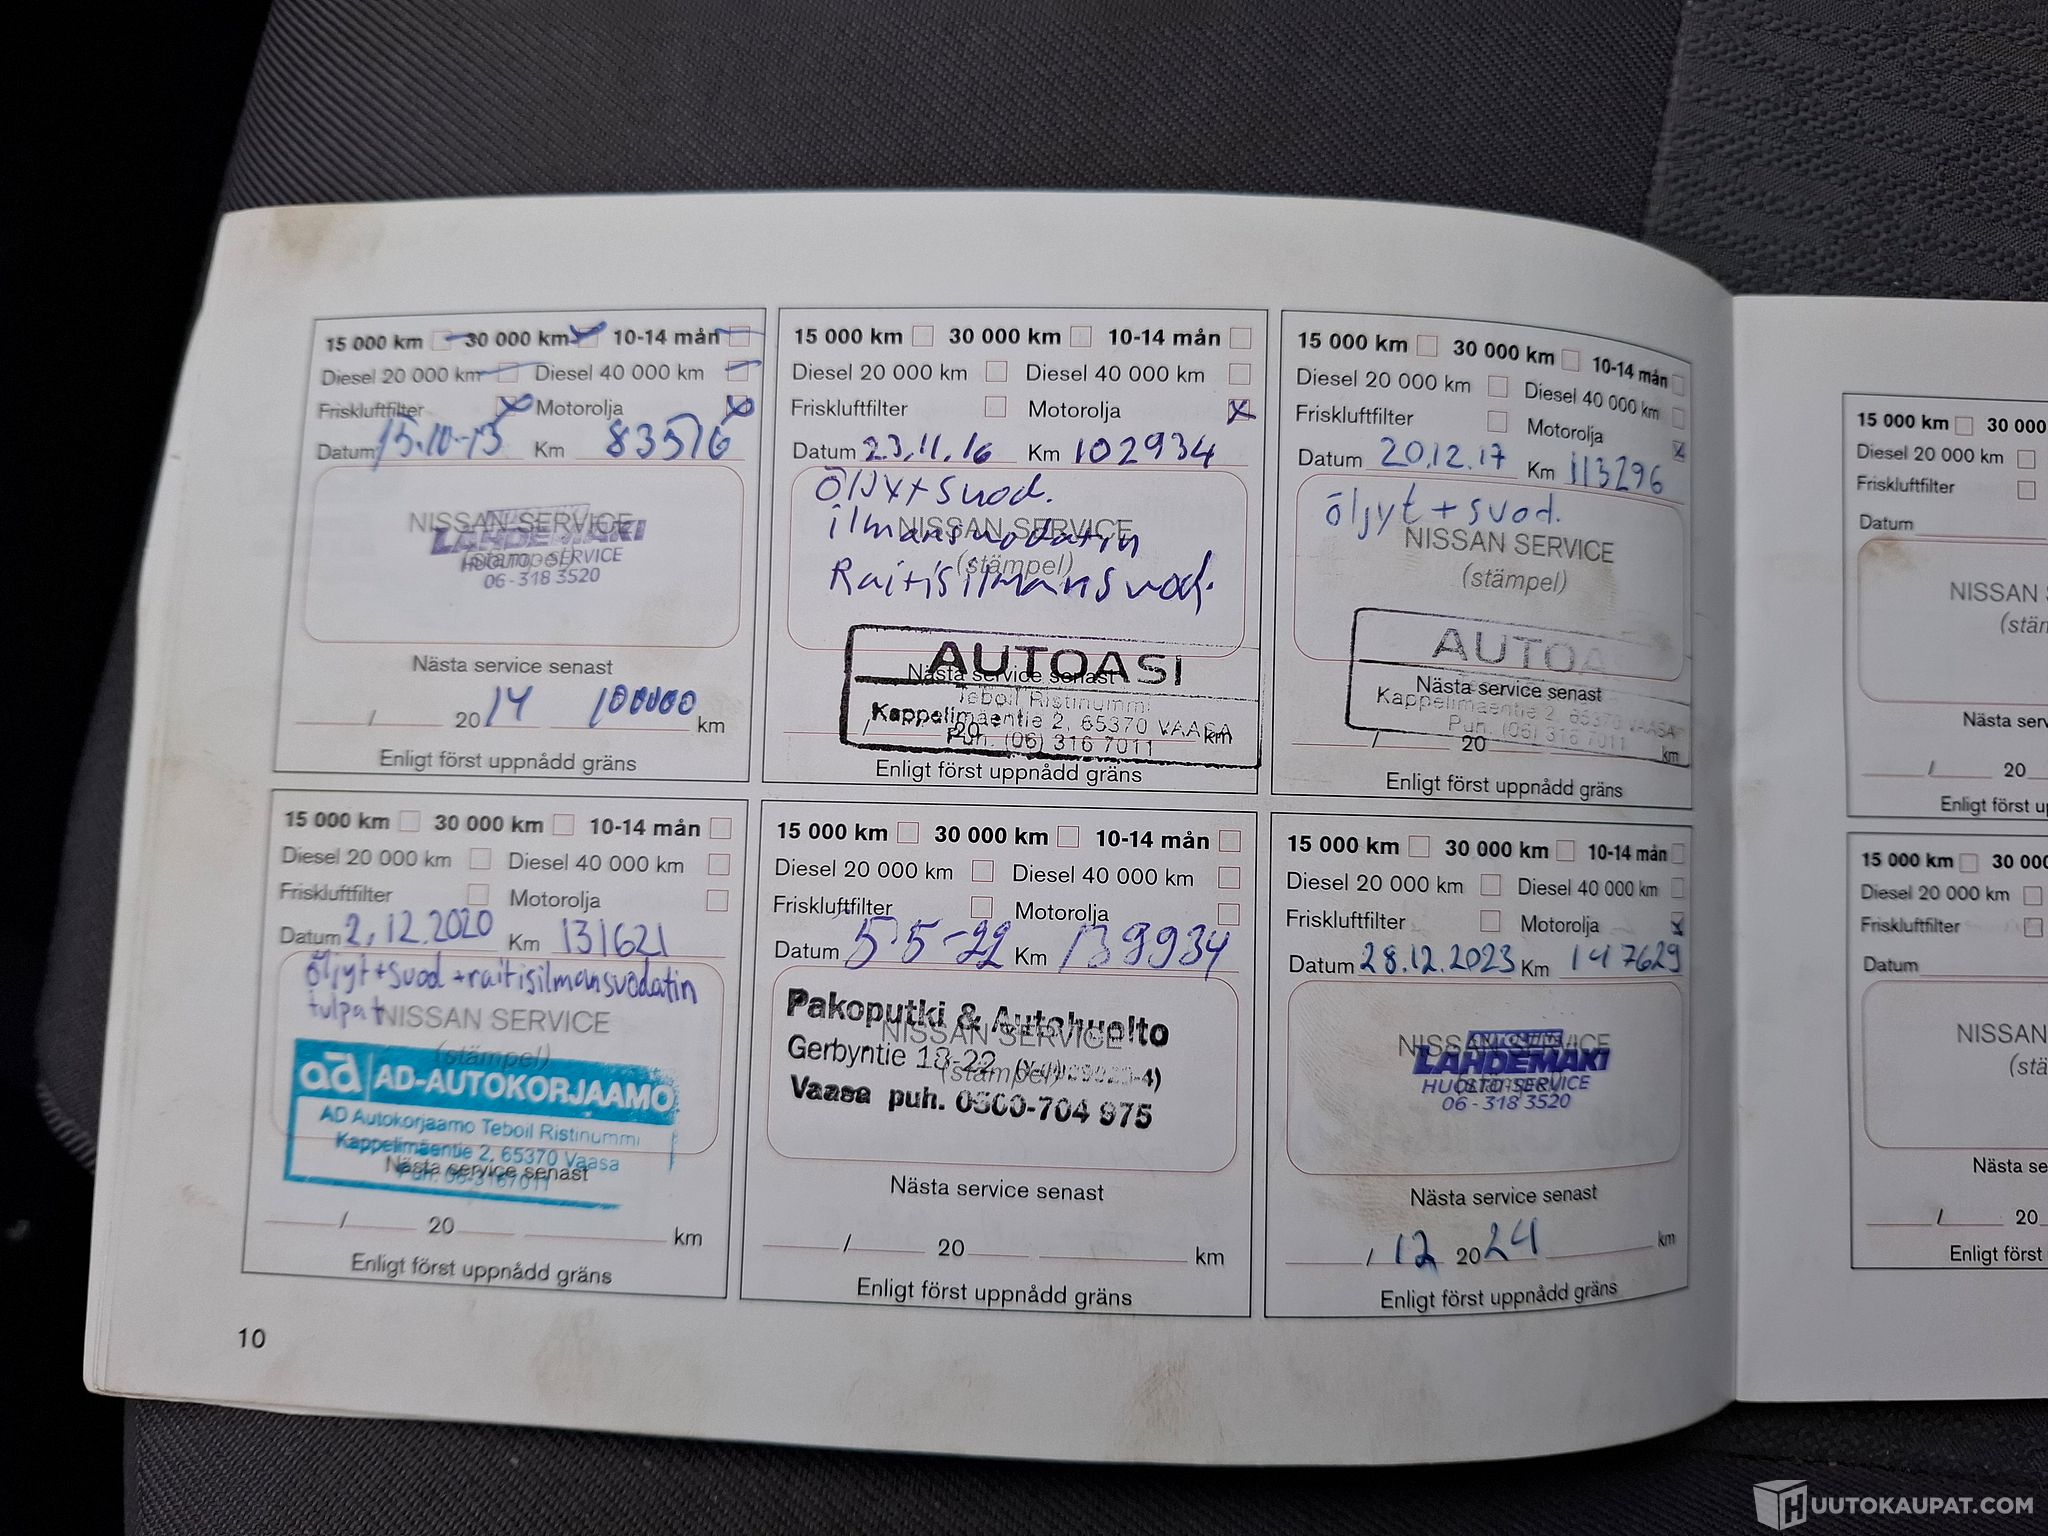 15 000 km 30 000 km 10-14 mån
Diesel 20 000 km Diesel 40 000 km
Friskluftfilter Motorolja
Datum 15.10-13 Km 83516
NISSAN SERVICE
(stämpel)
LAHDEMÄKI
HUOLTO-SERVICE
06-318 3520
Nästa service senast
/ 2014 100000 km
Enligt först uppnådd gräns
15 000 km 30 000 km 10-14 mån
Diesel 20 000 km Diesel 40 000 km
Friskluftfilter Motorolja X
Datum 23.11.16 Km 102934
öljyt+suod.
ilmansuodatin
NISSAN SERVICE
(stämpel)
Raitisilmansuod.
AUTOASI
Nästa service senast
Teboil Ristinummi
Kappelimäentie 2, 65370 VAASA
/ 20 km
Puh. (06) 316 7011
Enligt först uppnådd gräns
15 000 km 30 000 km 10-14 mån
Diesel 20 000 km Diesel 40 000 km
Friskluftfilter Motorolja X
Datum 20.12.17 Km 113296
öljyt + suod.
NISSAN SERVICE
(stämpel)
AUTOA
Nästa service senast
Kappelimäentie 2, 65370 VAASA
Puh. (06) 316 7011
/ 20 km
Enligt först uppnådd gräns
15 000 km 30 000 km 10-14 mån
Diesel 20 000 km Diesel 40 000 km
Friskluftfilter Motorolja
Datum 2.12.2020 Km 131621
öljyt+suod+raitisilmansuodatin
tulpat
NISSAN SERVICE
(stämpel)
ad AD-AUTOKORJAAMO
AD Autokorjaamo Teboil Ristinummi
Kappelimäentie 2, 65370 Vaasa
Nästa service senast
Puh. 06-3167011
/ 20 km
Enligt först uppnådd gräns
15 000 km 30 000 km 10-14 mån
Diesel 20 000 km Diesel 40 000 km
Friskluftfilter Motorolja
Datum 5-5-22 Km 139934
Pakoputki & Autohuolto
NISSAN SERVICE
Gerbyntie 18-22
(stämpel)
Vaasa puh. 0500-704 975
Nästa service senast
/ 20 km
Enligt först uppnådd gräns
15 000 km 30 000 km 10-14 mån
Diesel 20 000 km Diesel 40 000 km
Friskluftfilter Motorolja X
Datum 28.12.2023 Km 147629
NISSAN SERVICE
(stämpel)
LAHDEMÄKI
HUOLTO-SERVICE
06-318 3520
Nästa service senast
/ 12 2024 km
Enligt först uppnådd gräns
10
15 000 km 30 000
Diesel 20 000 km
Friskluftfilter
Datum
NISSAN S
(stän
Nästa serv
/ 20
Enligt först u
15 000 km 30 000
Diesel 20 000 km
Friskluftfilter
Datum
NISSAN
(stän
Nästa se
/ 20
Enligt först
HUUTOKAUPAT.COM